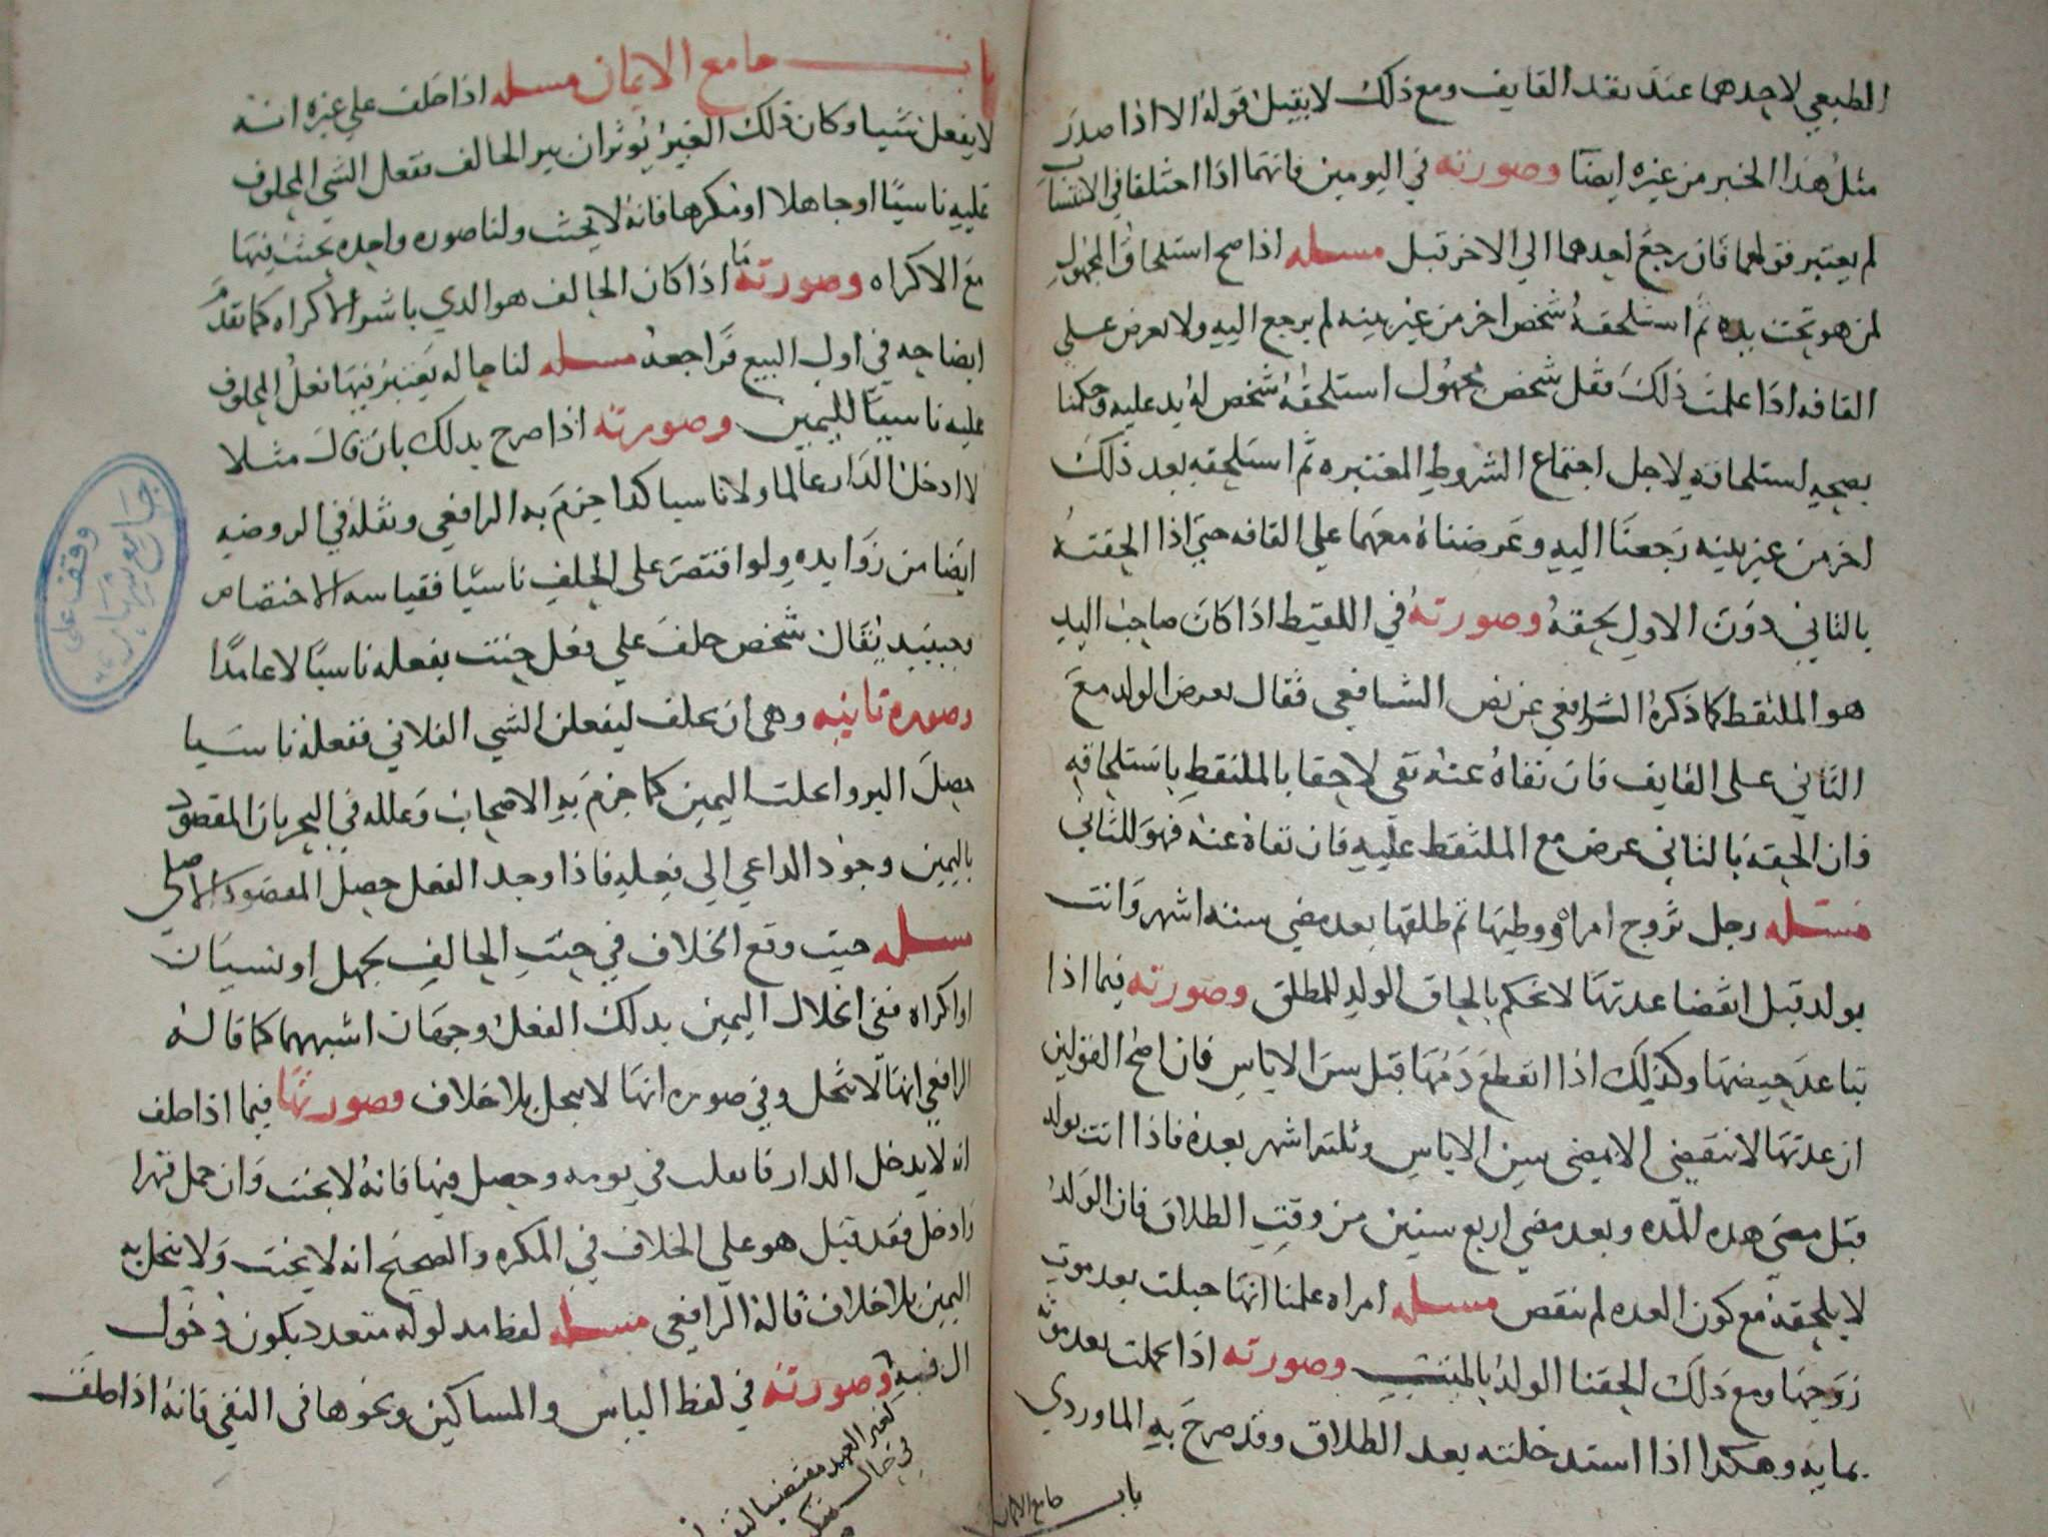 الطبيعي لاحدهما عند فقد القايف ومع ذلك لا يقبل قوله الا اذا صدر
مثل هذا الخبر من غيره ايضا وصورته في اليومين فانهما اذا اختلفا في الانتساب
لم يعتبر قولهما فان رجع احدهما الي الاخر قبل مسله اذا صح استلحاق المجهول
لمن هو تحت يده ثم استلحقه شخص اخر من غير بينه لم يرجع اليه ولا يعرض علي
القافه اذا علمت ذلك فقل شخص مجهول استلحقه شخص له يد عليه وحكمنا
بصحه استلحاقه لاجل اجتماع الشروط المعتبره ثم استلحقه بعد ذلك
اخر من غير بينه رجعنا اليه وعرضناه معهما علي القافه حتي اذا الحقته
بالثاني دون الاول لحقه وصورته في اللقيط اذا كان صاحب اليد
هو الملتقط كما ذكره الرافعي عن نص الشافعي فقال يعرض الولد مع
الثاني علي القايف فان نفاه عنه بقي لاحقا بالملتقط باستلحاقه
وان الحقه بالثاني عرض مع الملتقط عليه فان نفاه عنه فهو للثاني
مسله رجل تزوج امراه ووطيها ثم طلقها بعد مضي سته اشهر واتت
بولد قبل انقضا عدتها لا نحكم بالحاق الولد للمطلق وصورته فيما اذا
تباعد حيضها وكذلك اذا انقطع دمها قبل سن الاياس فان اصح القولين
ان عدتها لا تنقضي الا بمضي سن الاياس وثلثه اشهر بعده فاذا اتت بولد
قبل مضي هذه المده وبعد مضي اربع سنين من وقت الطلاق فان الولد
لا يلحقه مع كون العده لم تنقض مسله امراه علمنا انها حبلت بعد موت
زوجها ومع ذلك الحقنا الولد بالميت وصورته اذا حملت بعد موته
بمايه وهكذا اذا استدخلته بعد الطلاق وقد صرح به الماوردي
باب جامع الايمان
باب جامع الايمان مسله اذا حلف علي غيره انه
لا يفعل شيا وكان ذلك الغير يوثر ان يبر الحالف ففعل الشي المحلوف
عليه ناسيا او جاهلا او مكرها فانه لا يحنث ولنا صوره واحده يحنث فيها
مع الاكراه وصورته ما اذا كان الحالف هو الذي باشر الاكراه كما تقدم
ايضاحه في اول البيع فراجعه مسله لنا حاله يعتبر فيها فعل المحلوف
عليه ناسيا لليمين وصورته اذا صرح بذلك بان قال مثلا
لا ادخل الدار عالما ولا ناسيا كذا جزم به الرافعي ونقله في الروضه
ايضا من زوايده ولو اقتصر علي الحلف ناسيا فقياسه الاختصاص
وحينيذ يقال شخص حلف علي فعل حنث بفعله ناسيا لا عامدا
وصوره ثانيه وهي ان يحلف ليفعلن الشي الفلاني ففعله ناسيا
حصل البر وانحلت اليمين كما جزم به الاصحاب وعلله في البحر بان المقصود
باليمين وجود الداعي الي فعله فاذا وجد الفعل حصل المقصود الاصلي
مسله حيث وقع الخلاف في حنث الحالف بجهل او نسيان
او اكراه ففي انحلال اليمين بذلك الفعل وجهان اشبههما كما قاله
الرافعي انها لا تنحل وفي صوره انها لا تنحل بلا خلاف وصورتها فيما اذا حلف
انه لا يدخل الدار فانقلب في نومه وحصل فيها فانه لا يحنث وان حمل قهرا
وادخل فقد قيل هو علي الخلاف في المكره والصحيح انه لا يحنث ولا ينحل به
اليمين بلا خلاف قاله الرافعي مسله لفظ مدلوله متعدد يكون دخول
ال فيه وصورته في لفظ الناس والمساكين ونحوها في النفي فانه اذا حلف
لغير العهد مقتضيا
في حال
وقف علي
جامع